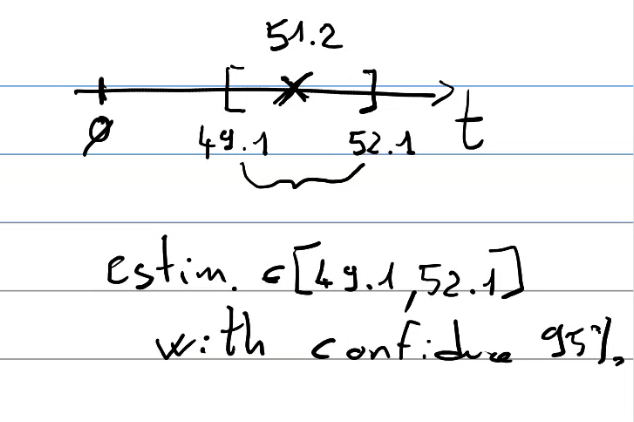 51.2
0 49.1 52.1 t
estim. ∈ [49.1, 52.1]
with confidence 95%